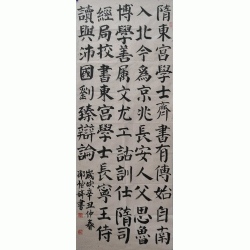 隋東宮學士齊書有傳始自南
入北今爲京兆長安人父思魯
博學善屬文尤工詁訓仕隋司
經局校書東宮學士長寧王侍
讀與沛國劉臻辯論
歲次辛丑仲春
書